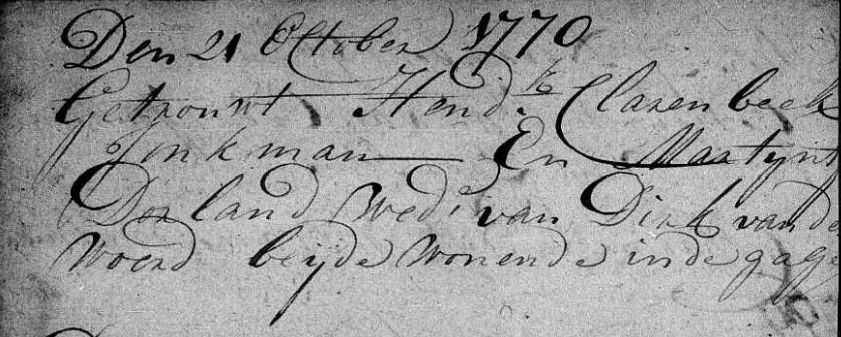 Den 21 October 1770
Getrouwt Hend.k Clarenbeek
Jonkman En Martynt
Dorland Wed.e van Dirk van de
Woerd beyde Wonende inde gage